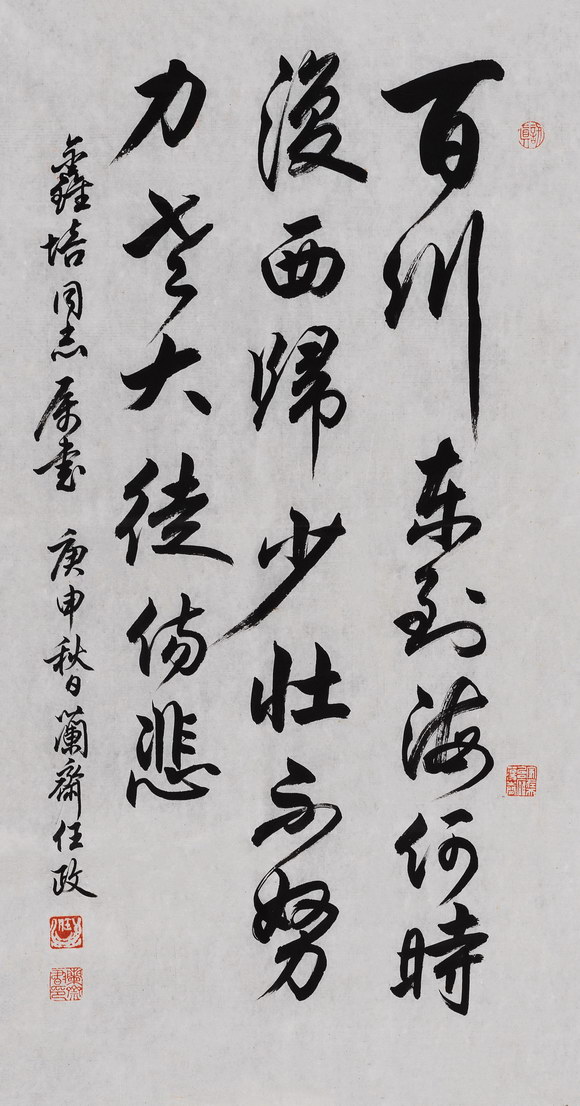 百川东到海何時
復西歸少壯不努
力老大徒傷悲
鑫培同志属书 庚申秋日蘭齋任政